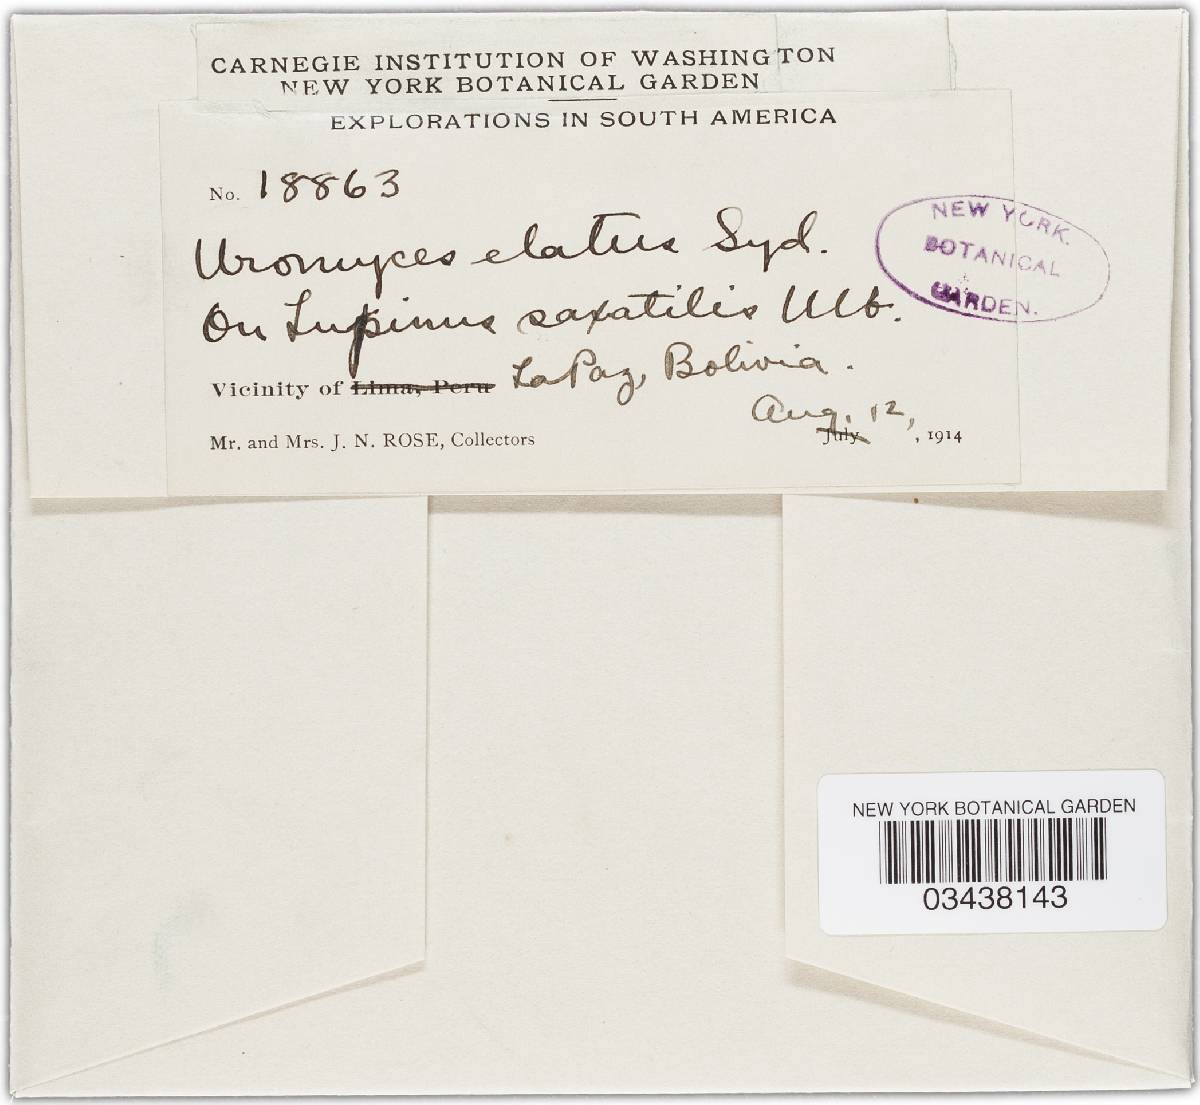 CARNEGIE INSTITUTION OF WASHINGTON
NEW YORK BOTANICAL GARDEN
EXPLORATIONS IN SOUTH AMERICA
No. 18863
Uromyces elatus Syd.
On Lupinus saxatilis Ulb.
Vicinity of Lima, Peru La Paz, Bolivia.
Aug. 12,
Mr. and Mrs. J. N. ROSE, Collectors July , 1914
NEW YORK
BOTANICAL
GARDEN.
NEW YORK BOTANICAL GARDEN
03438143